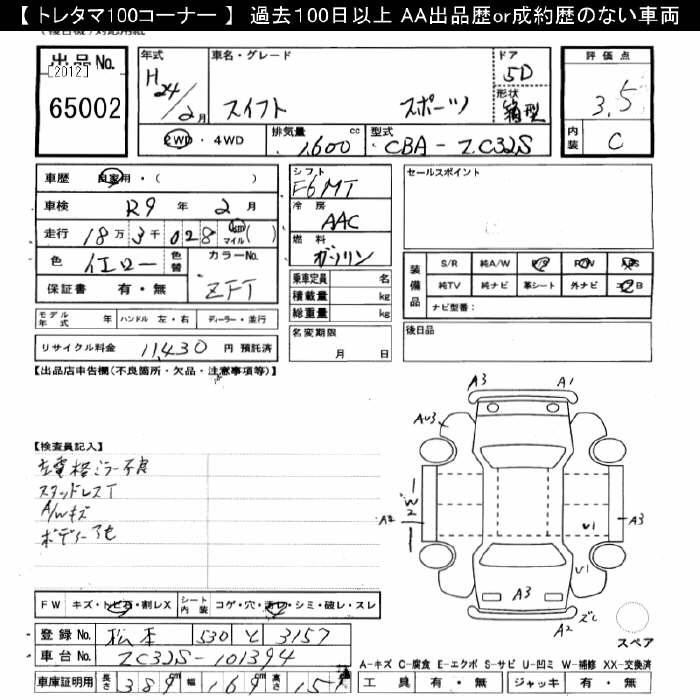 【 トレタマ100コーナー 】 過去100日以上 AA出品歴or成約歴のない車両
出品No.
[2012]
65002
年式
H24/2月
車名・グレード
スイフト スポーツ
ドア
5D
形状
箱型
評価点
3.5
内装
C
2WD・4WD
排気量 1,600 cc
型式 CBA-ZC32S
車歴 自家用・( )
車検 R9年 2月
走行 18万 3千 028 km マイル ( )
色 イエロー
色替
カラーNo.
ZFT
保証書 有・無
モデル年式 年
ハンドル 左・右
ディーラー・並行
リサイクル料金 11,430 円 預託済
シフト
F6MT
冷房
AAC
燃料
ガソリン
乗車定員 名
積載量 kg
総重量 kg
名変期限
月 日
セールスポイント
装備品
S/R 純A/W
純TV 純ナビ 革シート 外ナビ
ナビ型番:
後日品
【出品店申告欄(不良箇所・欠品・注意事項等)】
【検査員記入】
左電格ミラー不良
スタッドレスT
A/Wキズ
A3
A1
AU3
W2
A2
A3
U1
U1
A3
A2
スペア
FW キズ・トビ石・割レX
シート内装 コゲ・穴・汚レ・シミ・破レ・スレ
登録No. 松本 530 と 3157
車台No. ZC32S-101394
車庫証明用 長さ 389cm 幅 169cm 高さ 151
A-キズ C-腐食 E-エクボ S-サビ U-凹ミ W-補修 XX-交換済
工具 有・無 ジャッキ 有・無